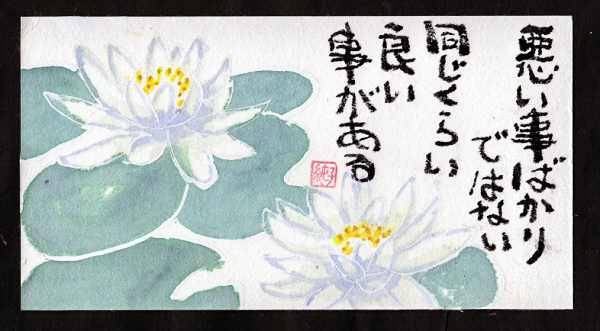 悪い事ばかり
ではない
同じくらい
良い
事がある